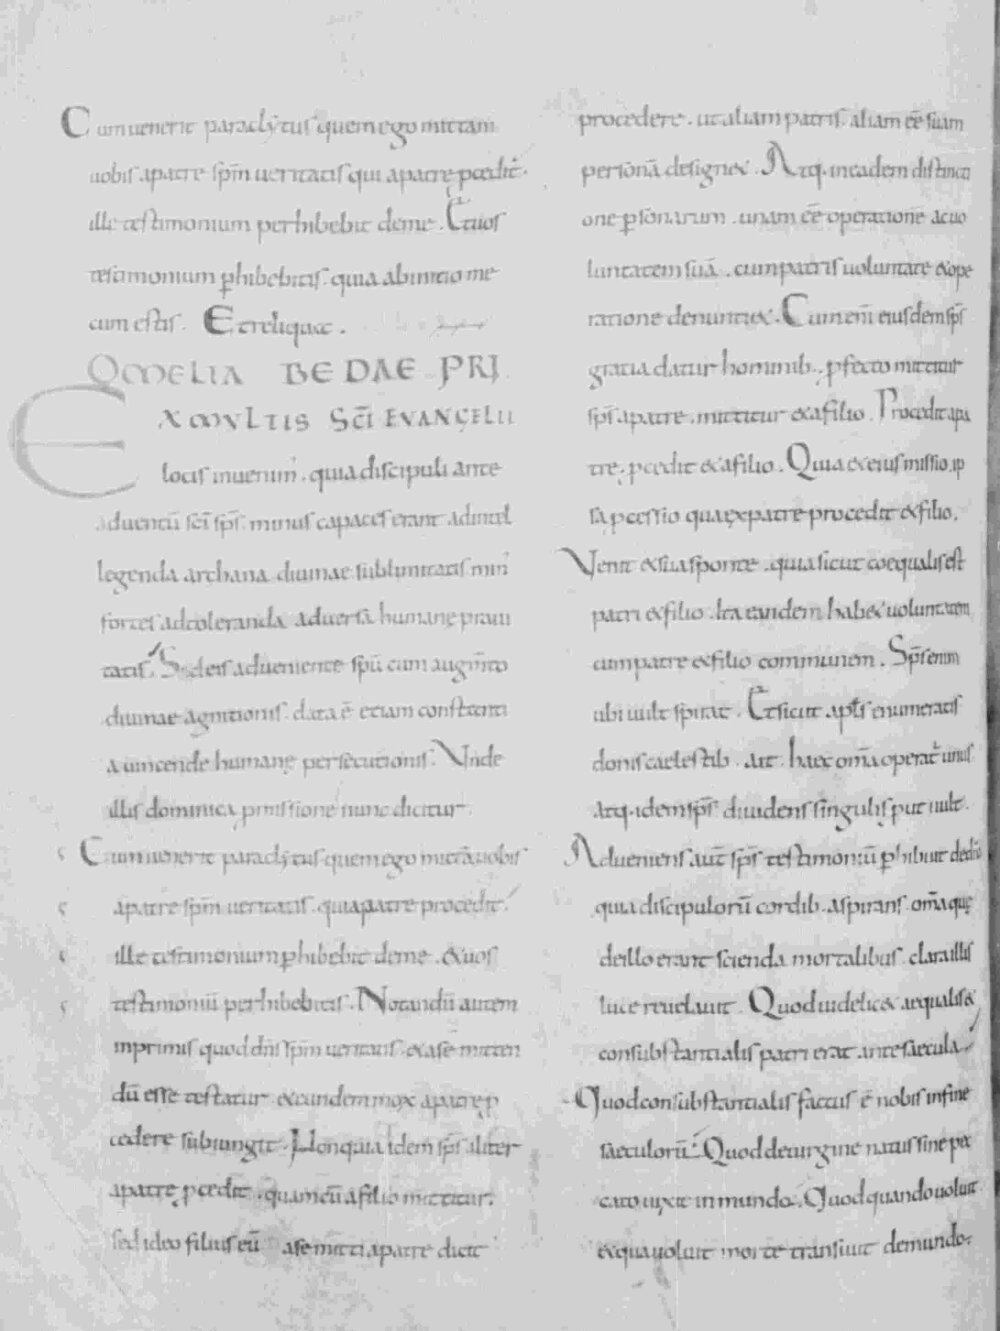 Cum uenerit paraclytus quem ego mittam
uobis a patre sp̄m ueritatis qui a patre ꝓcedit.
ille testimonium perhibebit de me. Et uos
testimonium ꝑhibebitis. quia ab initio me
cum estis. Et reliquae.
OMELIA BEDAE PRƷ
EX MULTIS SC̄I EVANGELII
locis inuenim' . quia discipuli ante
aduentū sc̄i sp̄s. minus capaces erant ad intel
legenda archana diuinae sublimitatis min'
fortes ad toleranda aduersa humanę praui
tatis. Sed eis adueniente sp̄u cum augm̄to
diuinae agnitionis. data ē etiam constanti
a uincende humanę persecutionis. Unde
illis dominica ꝓmissione nunc dicitur.
Cum uenerit paraclytus quem ego mittā uobis
a patre sp̄m ueritatis. qui a patre procedit.
ille testimonium ꝑhibebit de me. & uos
testimoniū perhibebitis. Notandū autem
inprimis quod dn̄s sp̄m ueritatis. & a se mitten
dū esse testatur & eundem mox a patre ꝓ
cedere subiungit. Non quia idem sp̄s aliter
a patre ꝓcedit. quam cū a filio mittitur.
sed ideo filius eū a se mitti a patre dicit
procedere. ut aliam patris. aliam ēē suam
personā designet. Atq. in eadem distincti
one ꝑsonarum. unam ēē operationē ac uo
luntatem suā. cum patris uoluntate & ope
ratione denuntiet. Cum eni̅ eiusdem sp̄s
gratia datur hominib. ꝓfecto mittitur
sp̄s a patre. mittitur & a filio. Procedit a pa
tre. ꝓcedit & a filio. Quia & eius missio. ip
sa ꝓcessio qua ex patre procedit & filio.
Venit & sua sponte. quia sicut coequalis est
patri & filio. Ita eandem habet uoluntatem
cum patre & filio communem. Sp̄s enim
ubi uult spirat. Et sicut apl̄s enumeratis
donis caelestib. ait. haec om̄a operat' unus
atq. idem sp̄s diuidens singulis put uult.
Adueniens aut̄ sp̄s testimoniū ꝑhibuit de dn̄o
quia discipulorū cordib. aspirans. om̄a quę
de illo erant scienda mortalibus clara illis
luce reuelauit. Quod uidelicet aequalis &
consubstantialis patri erat. ante saecula.
Quod consubstantialis factus ē nobis in fine
saeculorū. Quod de uirgine natus sine pec
cato uixit in mundo. Quod quando uoluit
& qua uoluit morte transiuit de mundo.